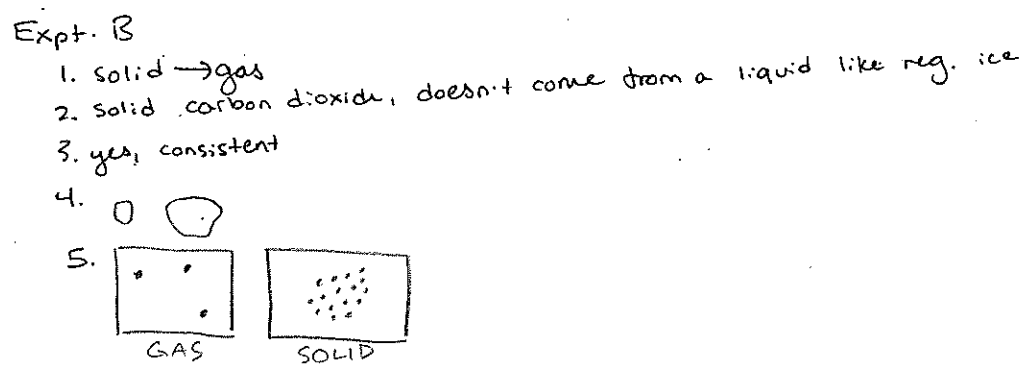 Expt. B
1. solid → gas
2. Solid carbon dioxide, doesn't come from a liquid like reg. ice
3. yes, consistent
4.
5.
GAS SOLID